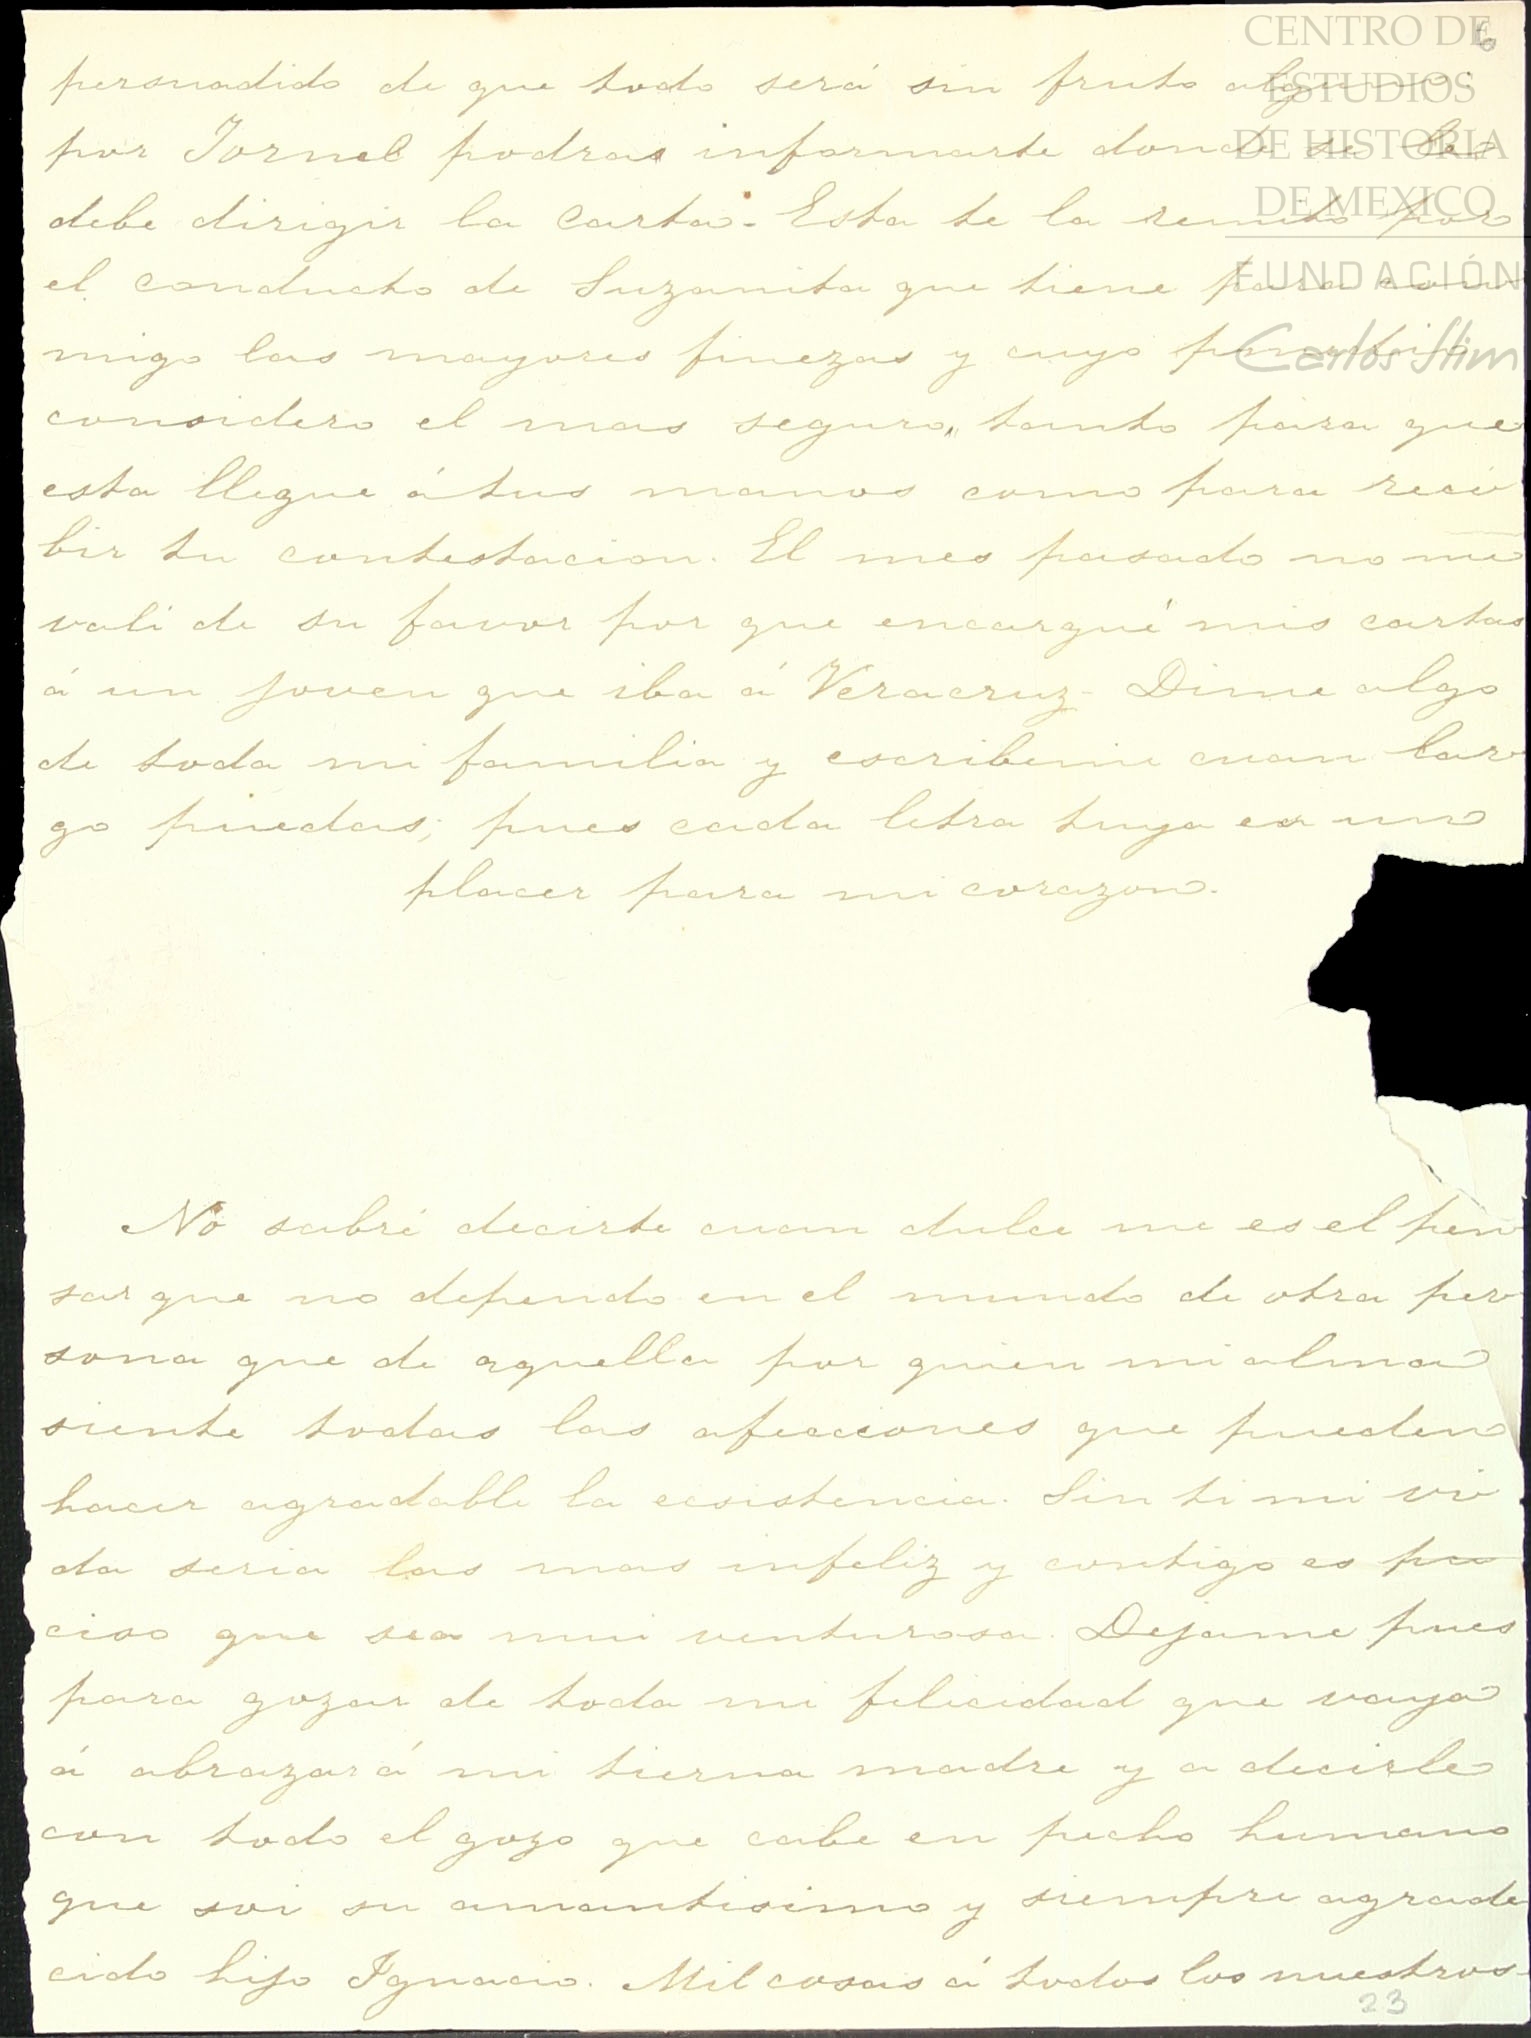 CENTRO DE
ESTUDIOS
DE HISTORIA
DE MEXICO
FUNDACIÓN
Carlos Slim
6
persuadido de que todo será sin fruto alguno:
por Tornel podras informarte donde se le
debe dirigir la carta. Esta te la remito por
el conducto de Suzanita que tiene para con
migo las mayores finezas y cuyo
considero el mas seguro, tanto para que
esta llegue á tus manos como para reci
bir tu contestacion. El mes pasado no me
vali de su favor por que encargué mis cartas
á un joven que iba á Veracruz- Dime algo
de toda mi familia y escribeme cuan lar
go puedas; pues cada letra tuya es un
placer para mi corazon.
No sabré decirte cuan dulce me es el pen
sar que no dependo en el mundo de otra per
sona que de aquella por quien mi alma
siente todas las afecciones que pueden
hacer agradable la ecsistencia. Sin ti mi vi
da seria las mas infeliz y contigo es pre
ciso que sea mui venturosa. Dejame pues
para gozar de toda mi felicidad que vaya
á abrazar á mi tierna madre y a decirle
con todo el gozo que cabe en pecho humano
que soi su amantisimo y siempre agrade
cido hijo Ignacio. Mil cosas á todos los nuestros.
23